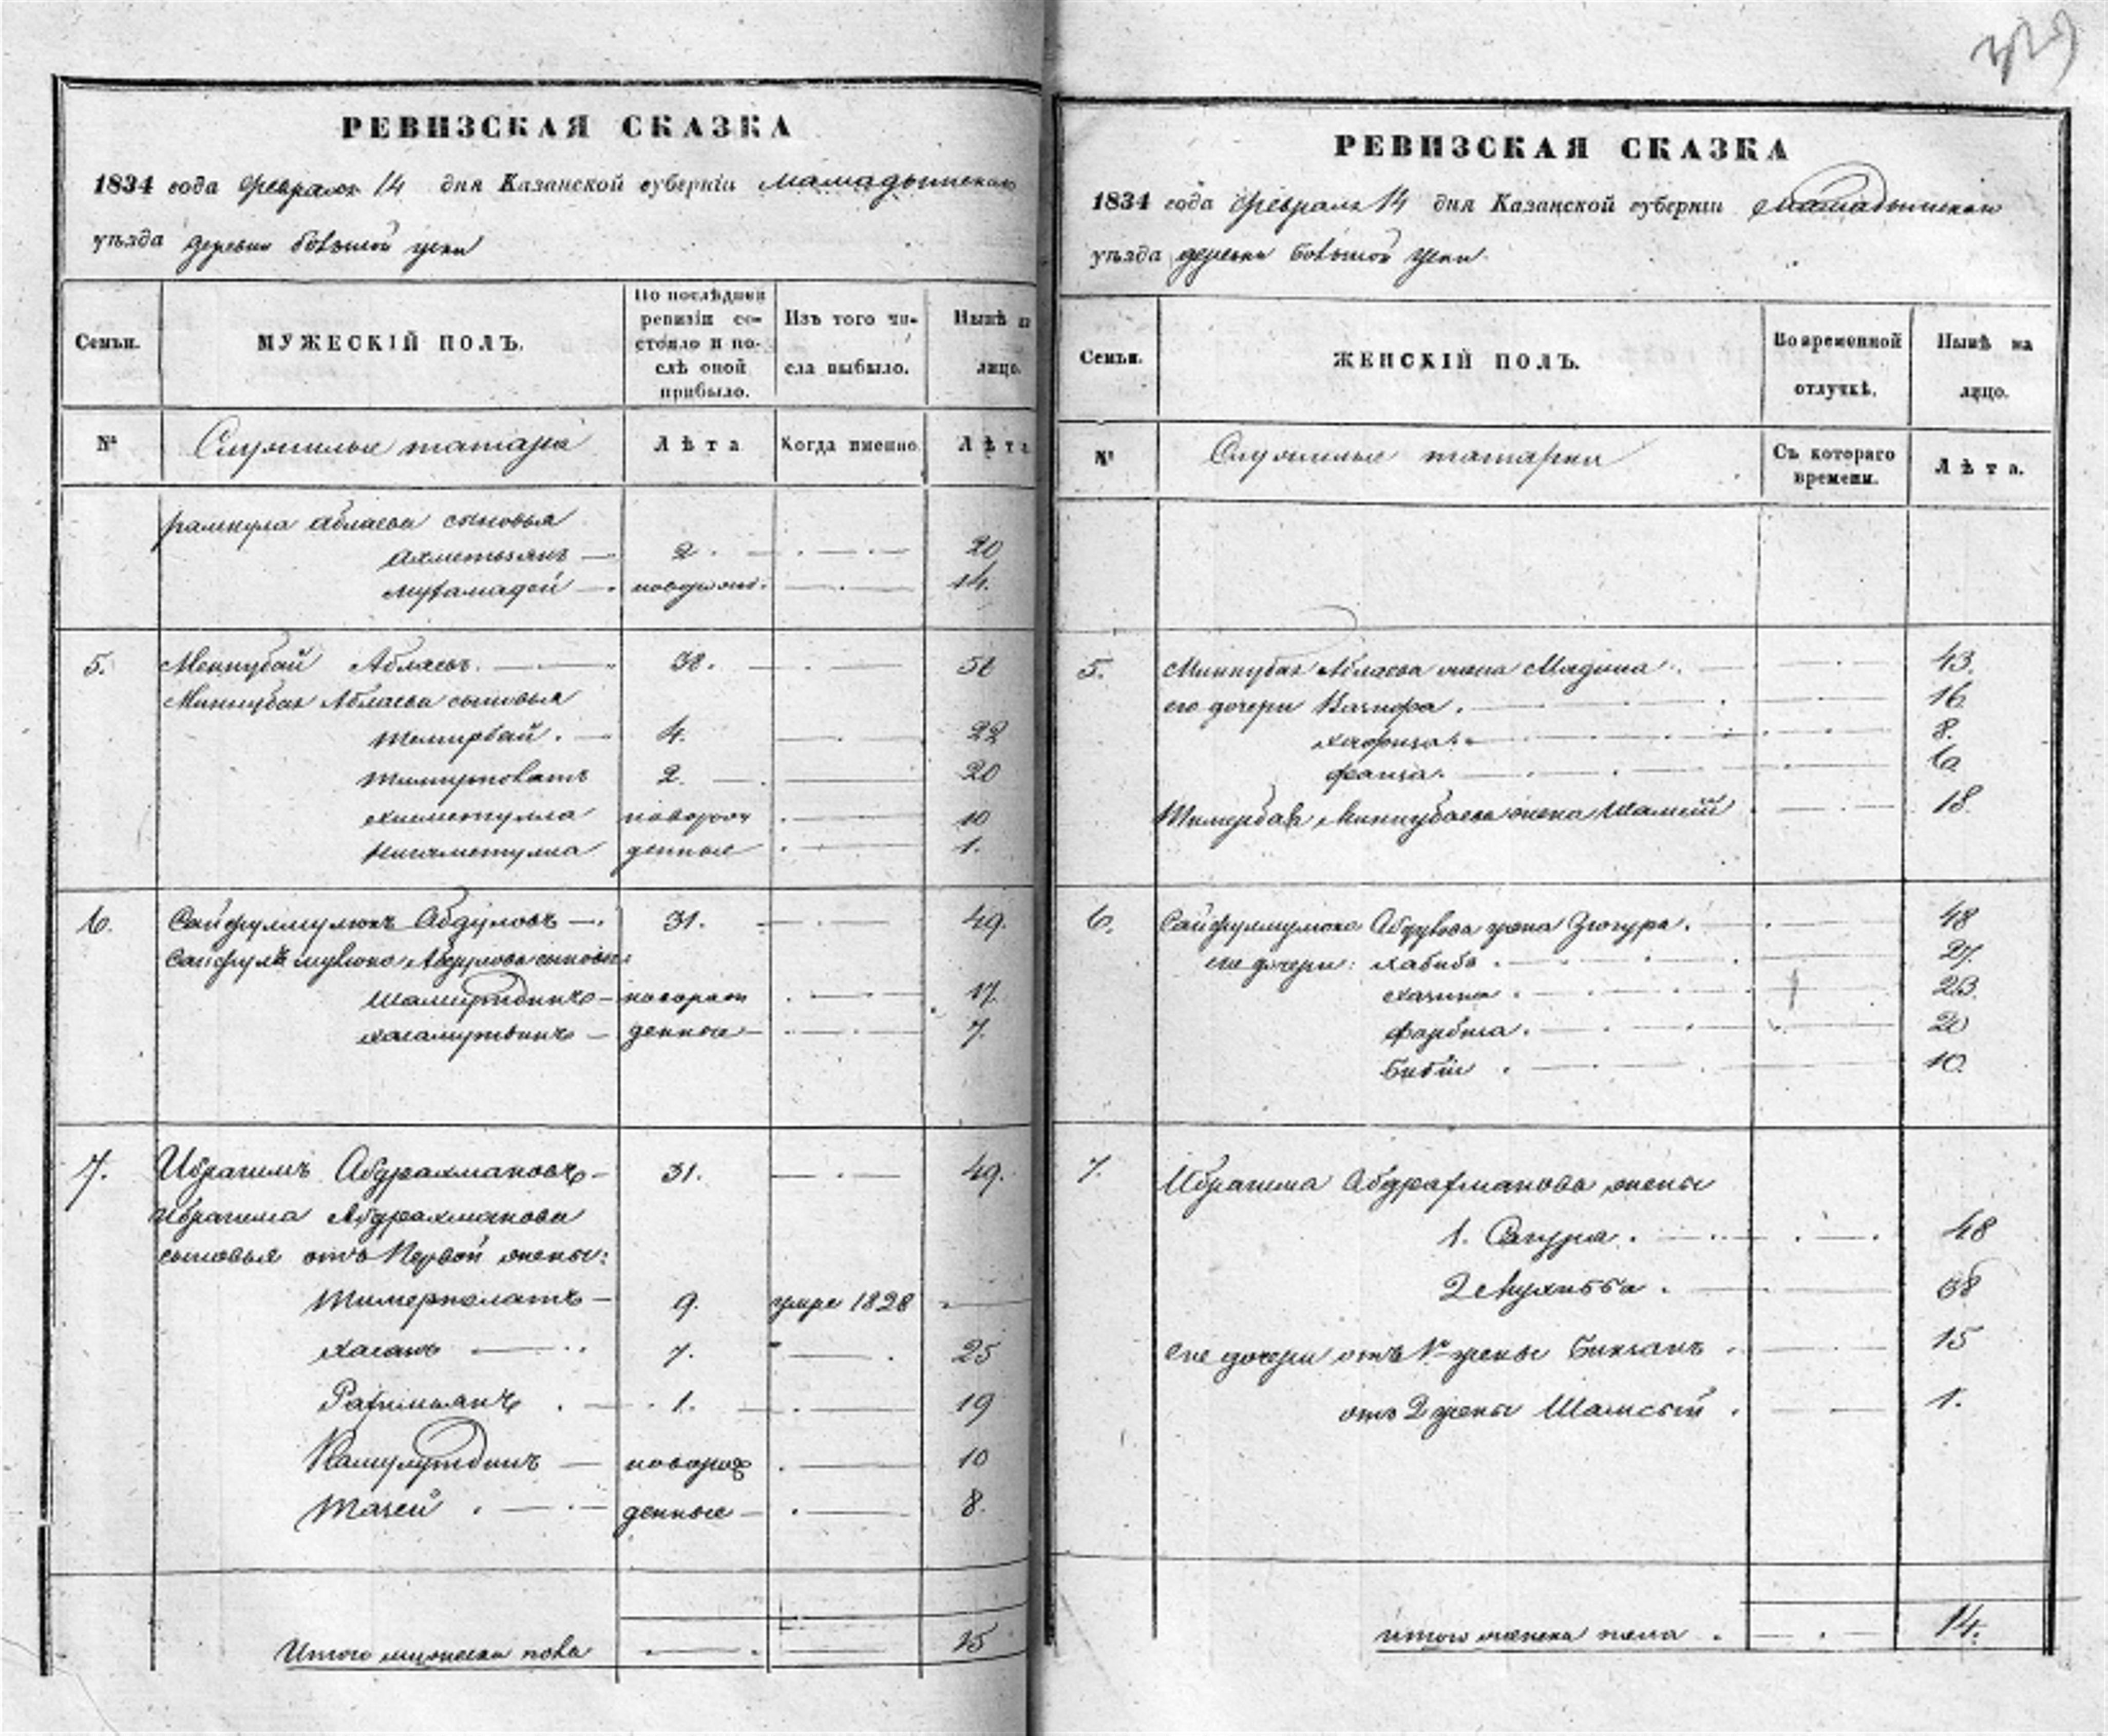 РЕВИЗСКАЯ СКАЗКА
1834 года февраля 14 дня Казанской губерніи Мамадышскаго
уѣзда деревни большой
Семьи.
МУЖЕСКІЙ ПОЛЪ.
По послѣдней ревизіи со-
стояло и по-
слѣ оной
прибыло.
Изъ того чи-
сла выбыло.
Нынѣ на
лицо.
№
Служилые татара
Лѣта
Когда именно
Лѣта
Аблаева сыновья
Ахметьзянъ 2. 20
14.
5. Минкубай Аблаевъ. 38. 56
Минкубая Аблаева сыновья
Темирбай. 4. 22
Тимирполатъ 2. 20
Хисметулла новорож 10
Нигаметулла денные 1.
6. Сайфулмулюкъ Абдуловъ 31. 49.
Сайфулъ мулюка Абдулова сыновья
новорож 17.
денные 7.
7. Ибрагимъ Абдрахмановъ 31. 49.
Ибрагима Абдрахманова
сыновья отъ Первой жены:
Тимерполатъ 9. умре 1828
Хасанъ 7. 25
Рахимьянъ 1. 19
Камулутдинъ новорож 10
Тазей денные 8.
Итого мужеска пола 15
РЕВИЗСКАЯ СКАЗКА
1834 года февраля 14 дня Казанской губерніи Мамадышскаго
уѣзда деревни большой
Семьи.
ЖЕНСКІЙ ПОЛЪ.
Во временной
отлучкѣ.
Нынѣ на
лицо.
№
Служилые татарки
Съ котораго
времени.
Лѣта.
5. Минкубая Аблаева жена Мадина 43.
его дочери 16
Хафиза 8.
Фаиза. 6
Тимербая Минкубаева жена 18.
6. Сайфулмулюка Абдулова жена Зюгура. 48
его дочери: Хабиба 27.
23.
20
Бибіи 10.
7. Ибрагима Абдрахманова жены
1. Сагура. 48
2 38
его дочери отъ 1й жены 15
отъ 2 жены Шамсый 1.
итого женска пола 14.